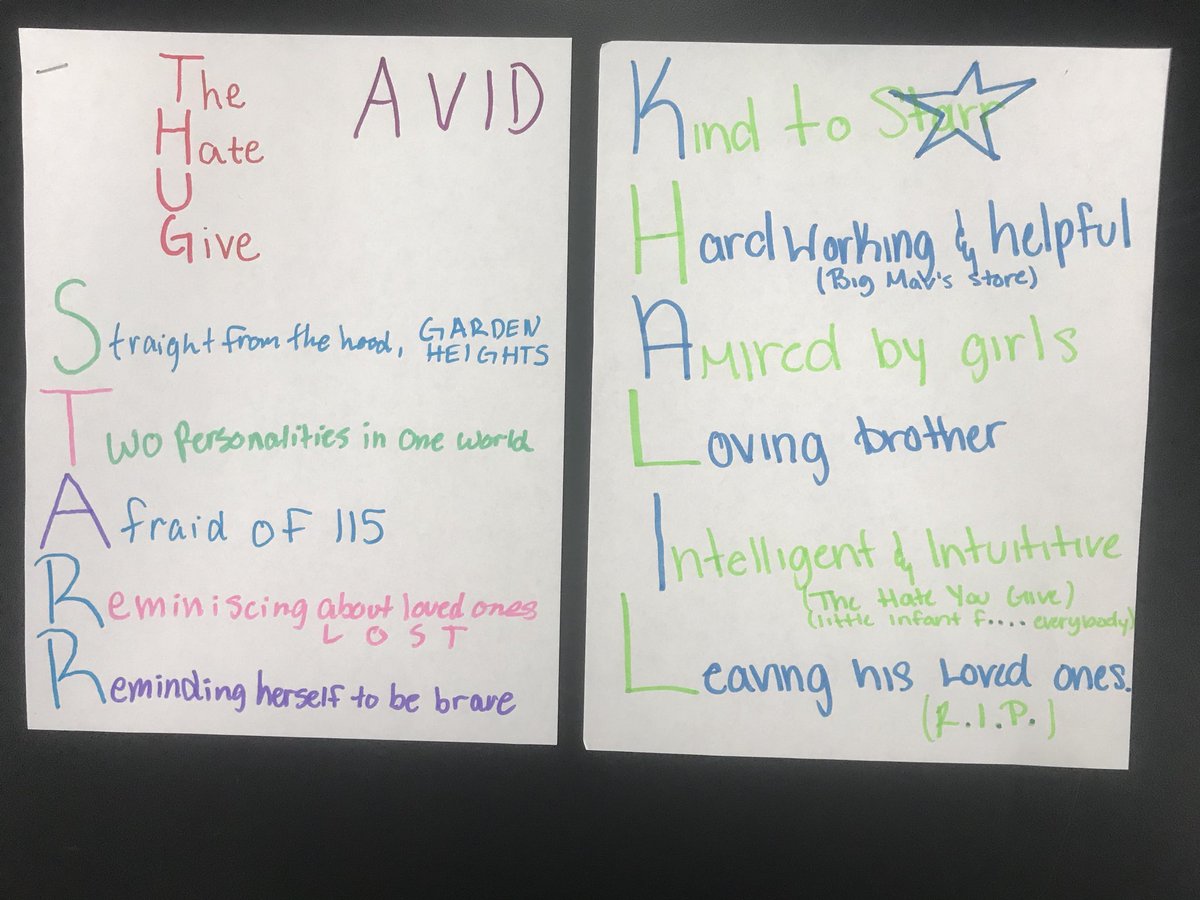 The
Hate
U
Give
AVID
Straight from the hood, GARDEN HEIGHTS
Two Personalities in one world
Afraid of 115
Reminiscing about loved ones
LOST
Reminding herself to be brave
Kind to Starr
Hard Working & helpful
(Big Mav's store)
AMired by girls
Loving brother
Intelligent & Intuititive
(The Hate You Give)
(little infant f.... everybody)
Leaving his Loved ones.
(R.I.P.)